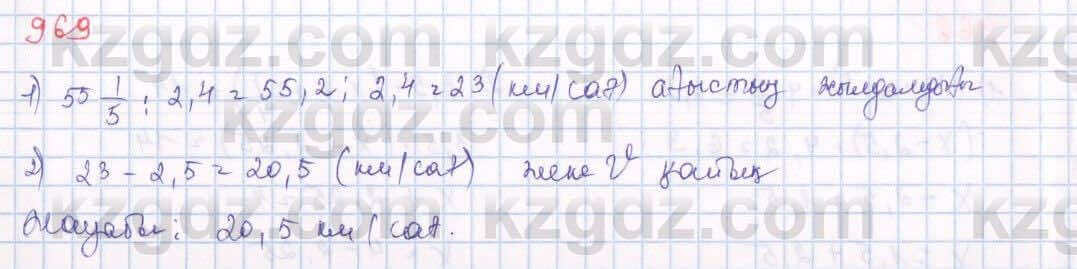 969
1) 55 1/5 : 2,4 = 55,2 : 2,4 = 23 (км/сағ) ағыстың жылдамдығы
2) 23 - 2,5 = 20,5 (км/сағ) жеке V қайық
Жауабы: 20,5 км/сағ.
kzgdz.com kzgdz.com
kzgdz.com kzgdz.com
kzgdz.com kzgdz.com